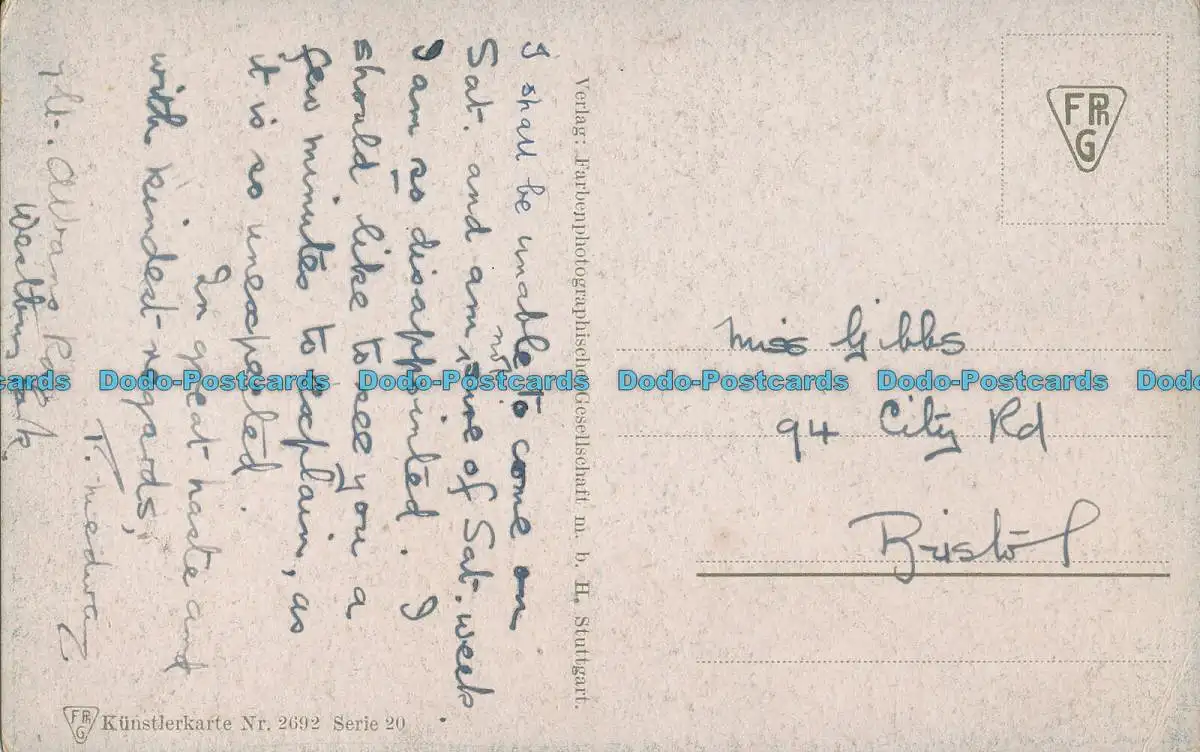 I shall be unable to come on
Sat. and am not sure of Sat. week
I am so disappointed. I
should like to see you a
few minutes to explain, as
it is so unexpected.
In great haste and
with kindest regards,
T. Medway
Rd.
Park
Verlag: Farbenphotographische Gesellschaft m. b. H. Stuttgart.
FPhG
Miss Gibbs
94 City Rd
Bristol
FPhG Künstlerkarte Nr. 2692 Serie 20
Dodo-Postcards Dodo-Postcards Dodo-Postcards Dodo-Postcards